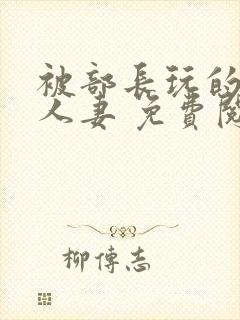 被部長玩的
人妻 免費閱
柳傳志